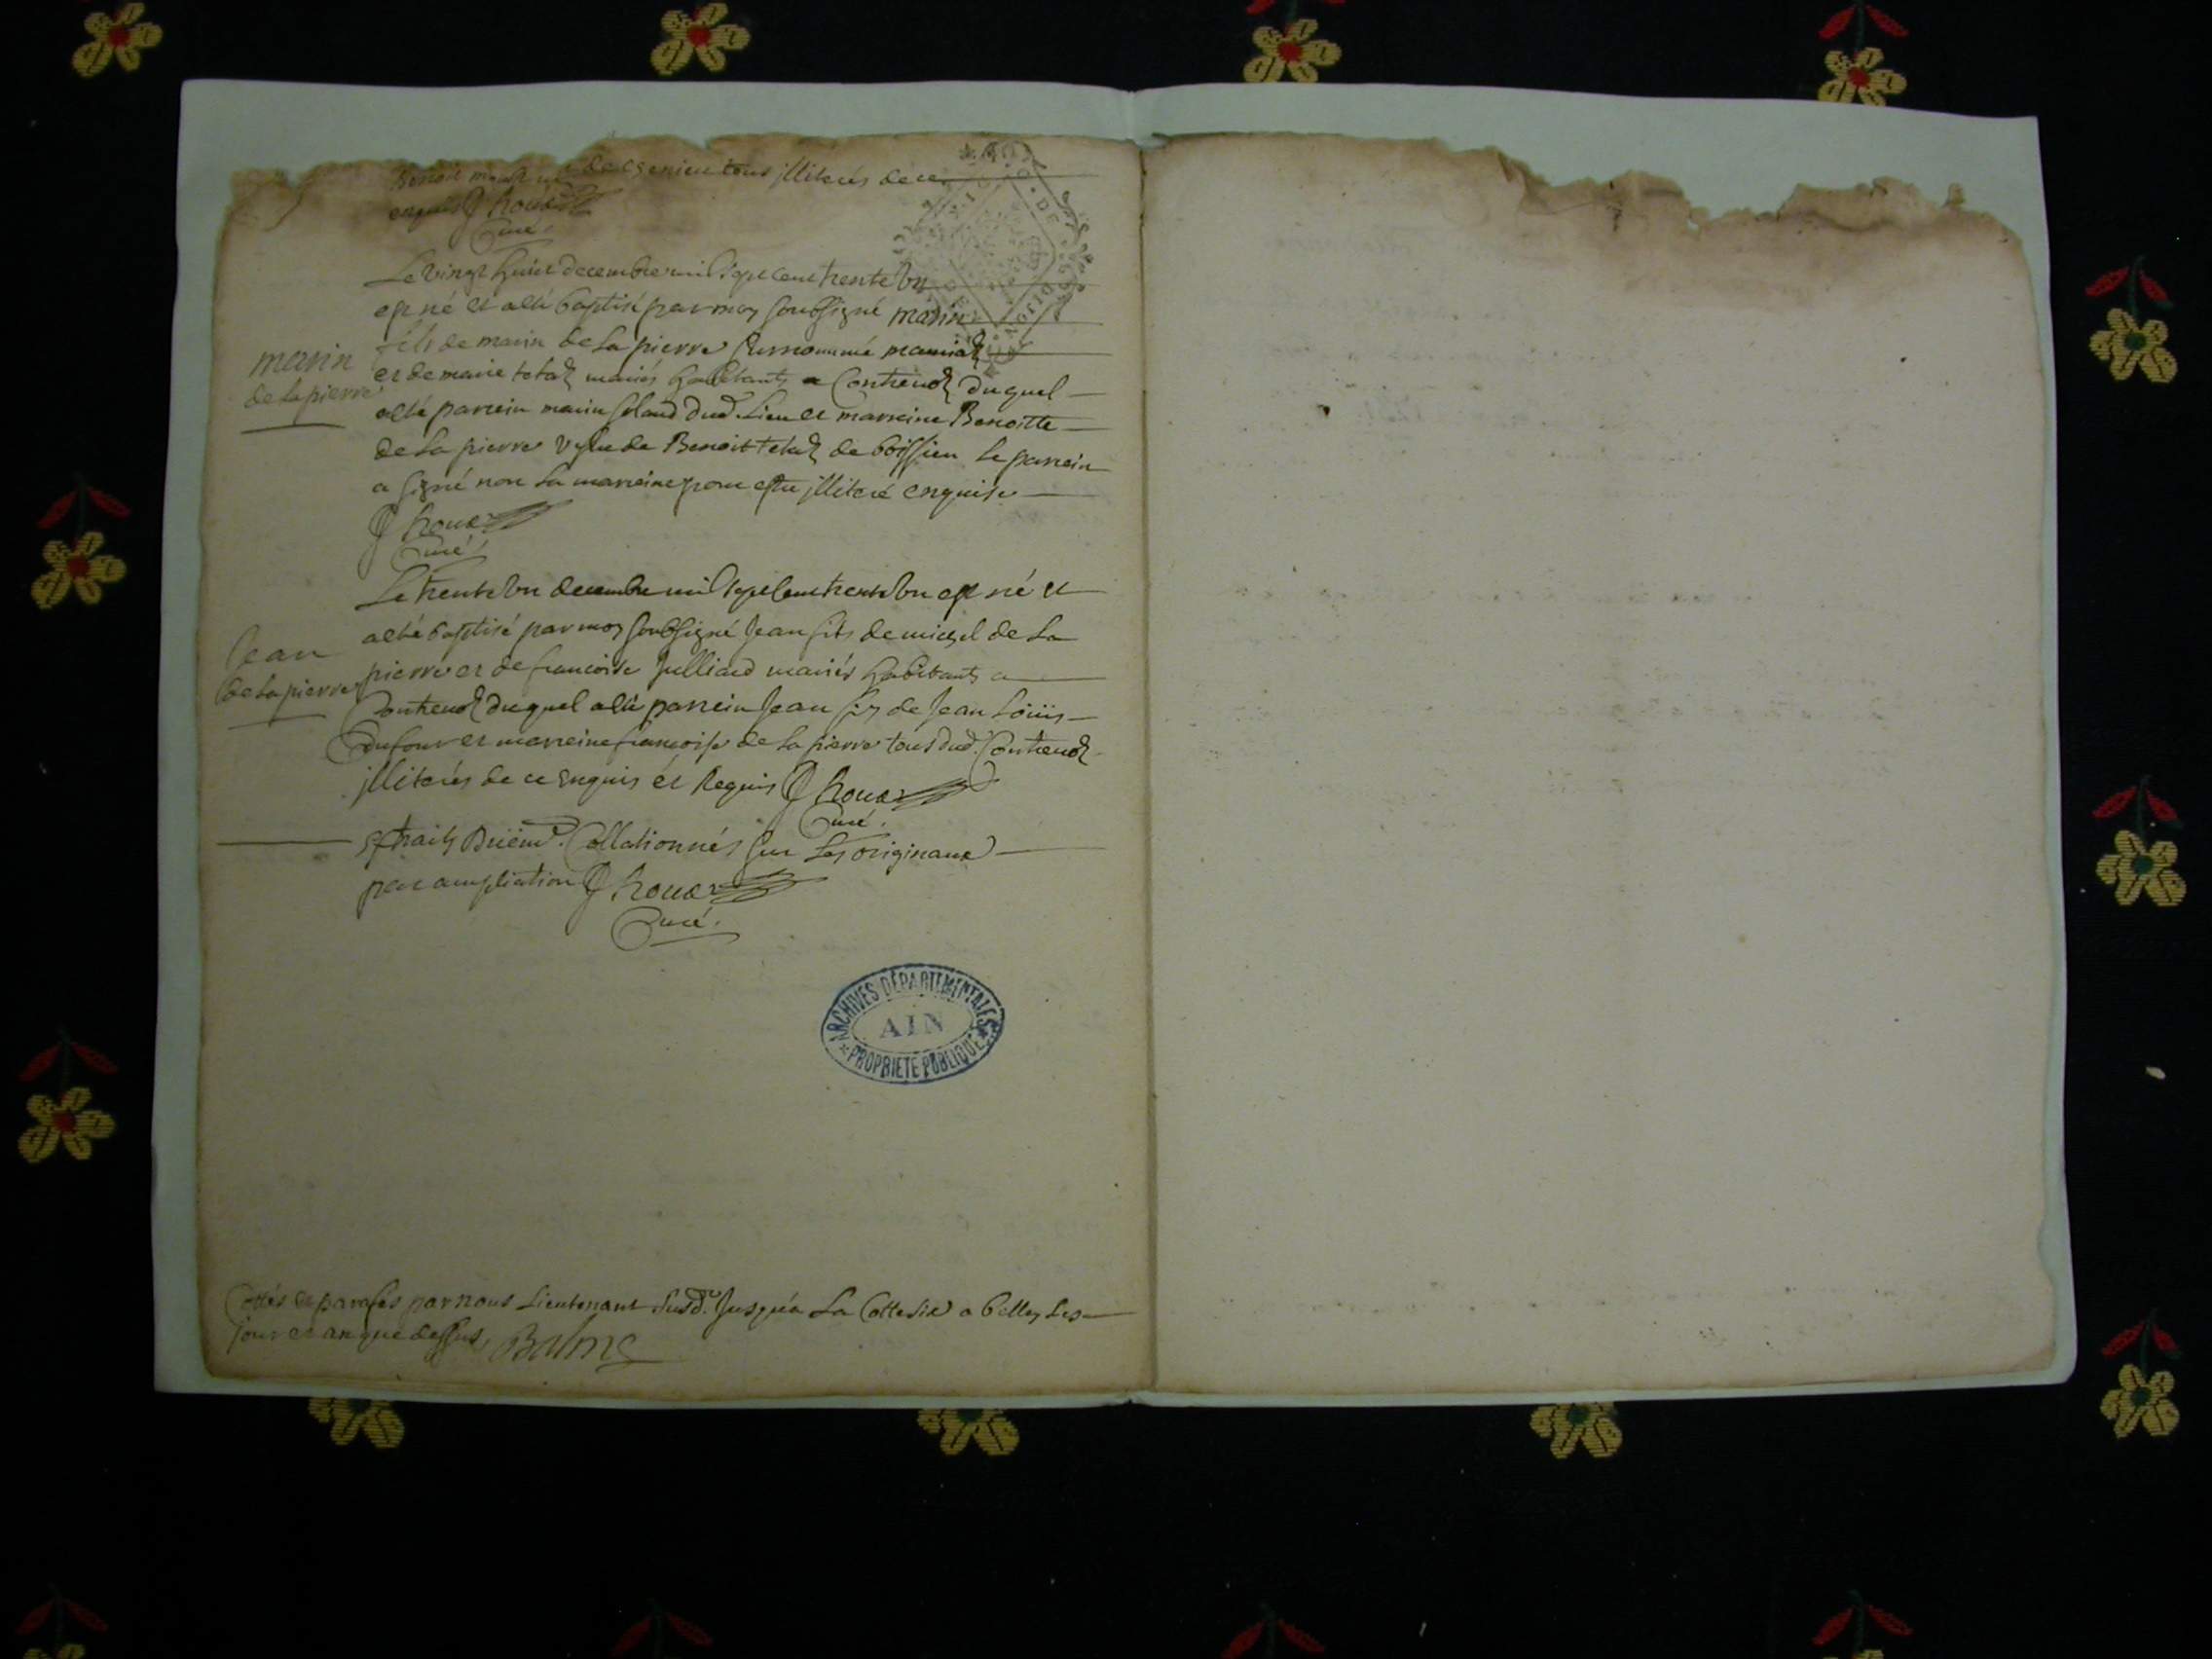 Benoit de Ceserieu tous jlliterés de ce
enquis Rouxz
Curé
Le vingt huict decembre mil sept cent trente un
est né et a eté baptisé par moy soubsigné marin
fils de marin de La pierre surnommé
et de marie tetaz mariés habitants a Contrevoz duquel
a eté parrein marin dud. Lieu et marreine Benoitte
de La pierre vefve de Benoit tetaz de boissieu Le parrein
a signé non La marreine pour estre jlliteré enquise
Rouxz
Curé
marin
de La pierre
Le trente un decembre mil sept cent trente un est né et
a eté baptisé par moy soubsigné Jean fils de michel de La
pierre et de francoise Julliard mariés habitants a
Contrevoz duquel a eté parrein Jean fils de Jean Loüis
Dufour et marreine francoise de La pierre tous dud. Contrevoz
jlliterés de ce Enquis et Requis Rouxz
Curé.
Jean
de La pierre
Extraits Collationnés sur Les originaux
par ampliation Rouxz
Curé.
ARCHIVES DÉPARTEMENTALES
AIN
PROPRIETE PUBLIQUE
Cottés et parafés par nous Lieutenant susd. Jusqu'éa La Cotte six a belley Les
jour et an que dessus Balme